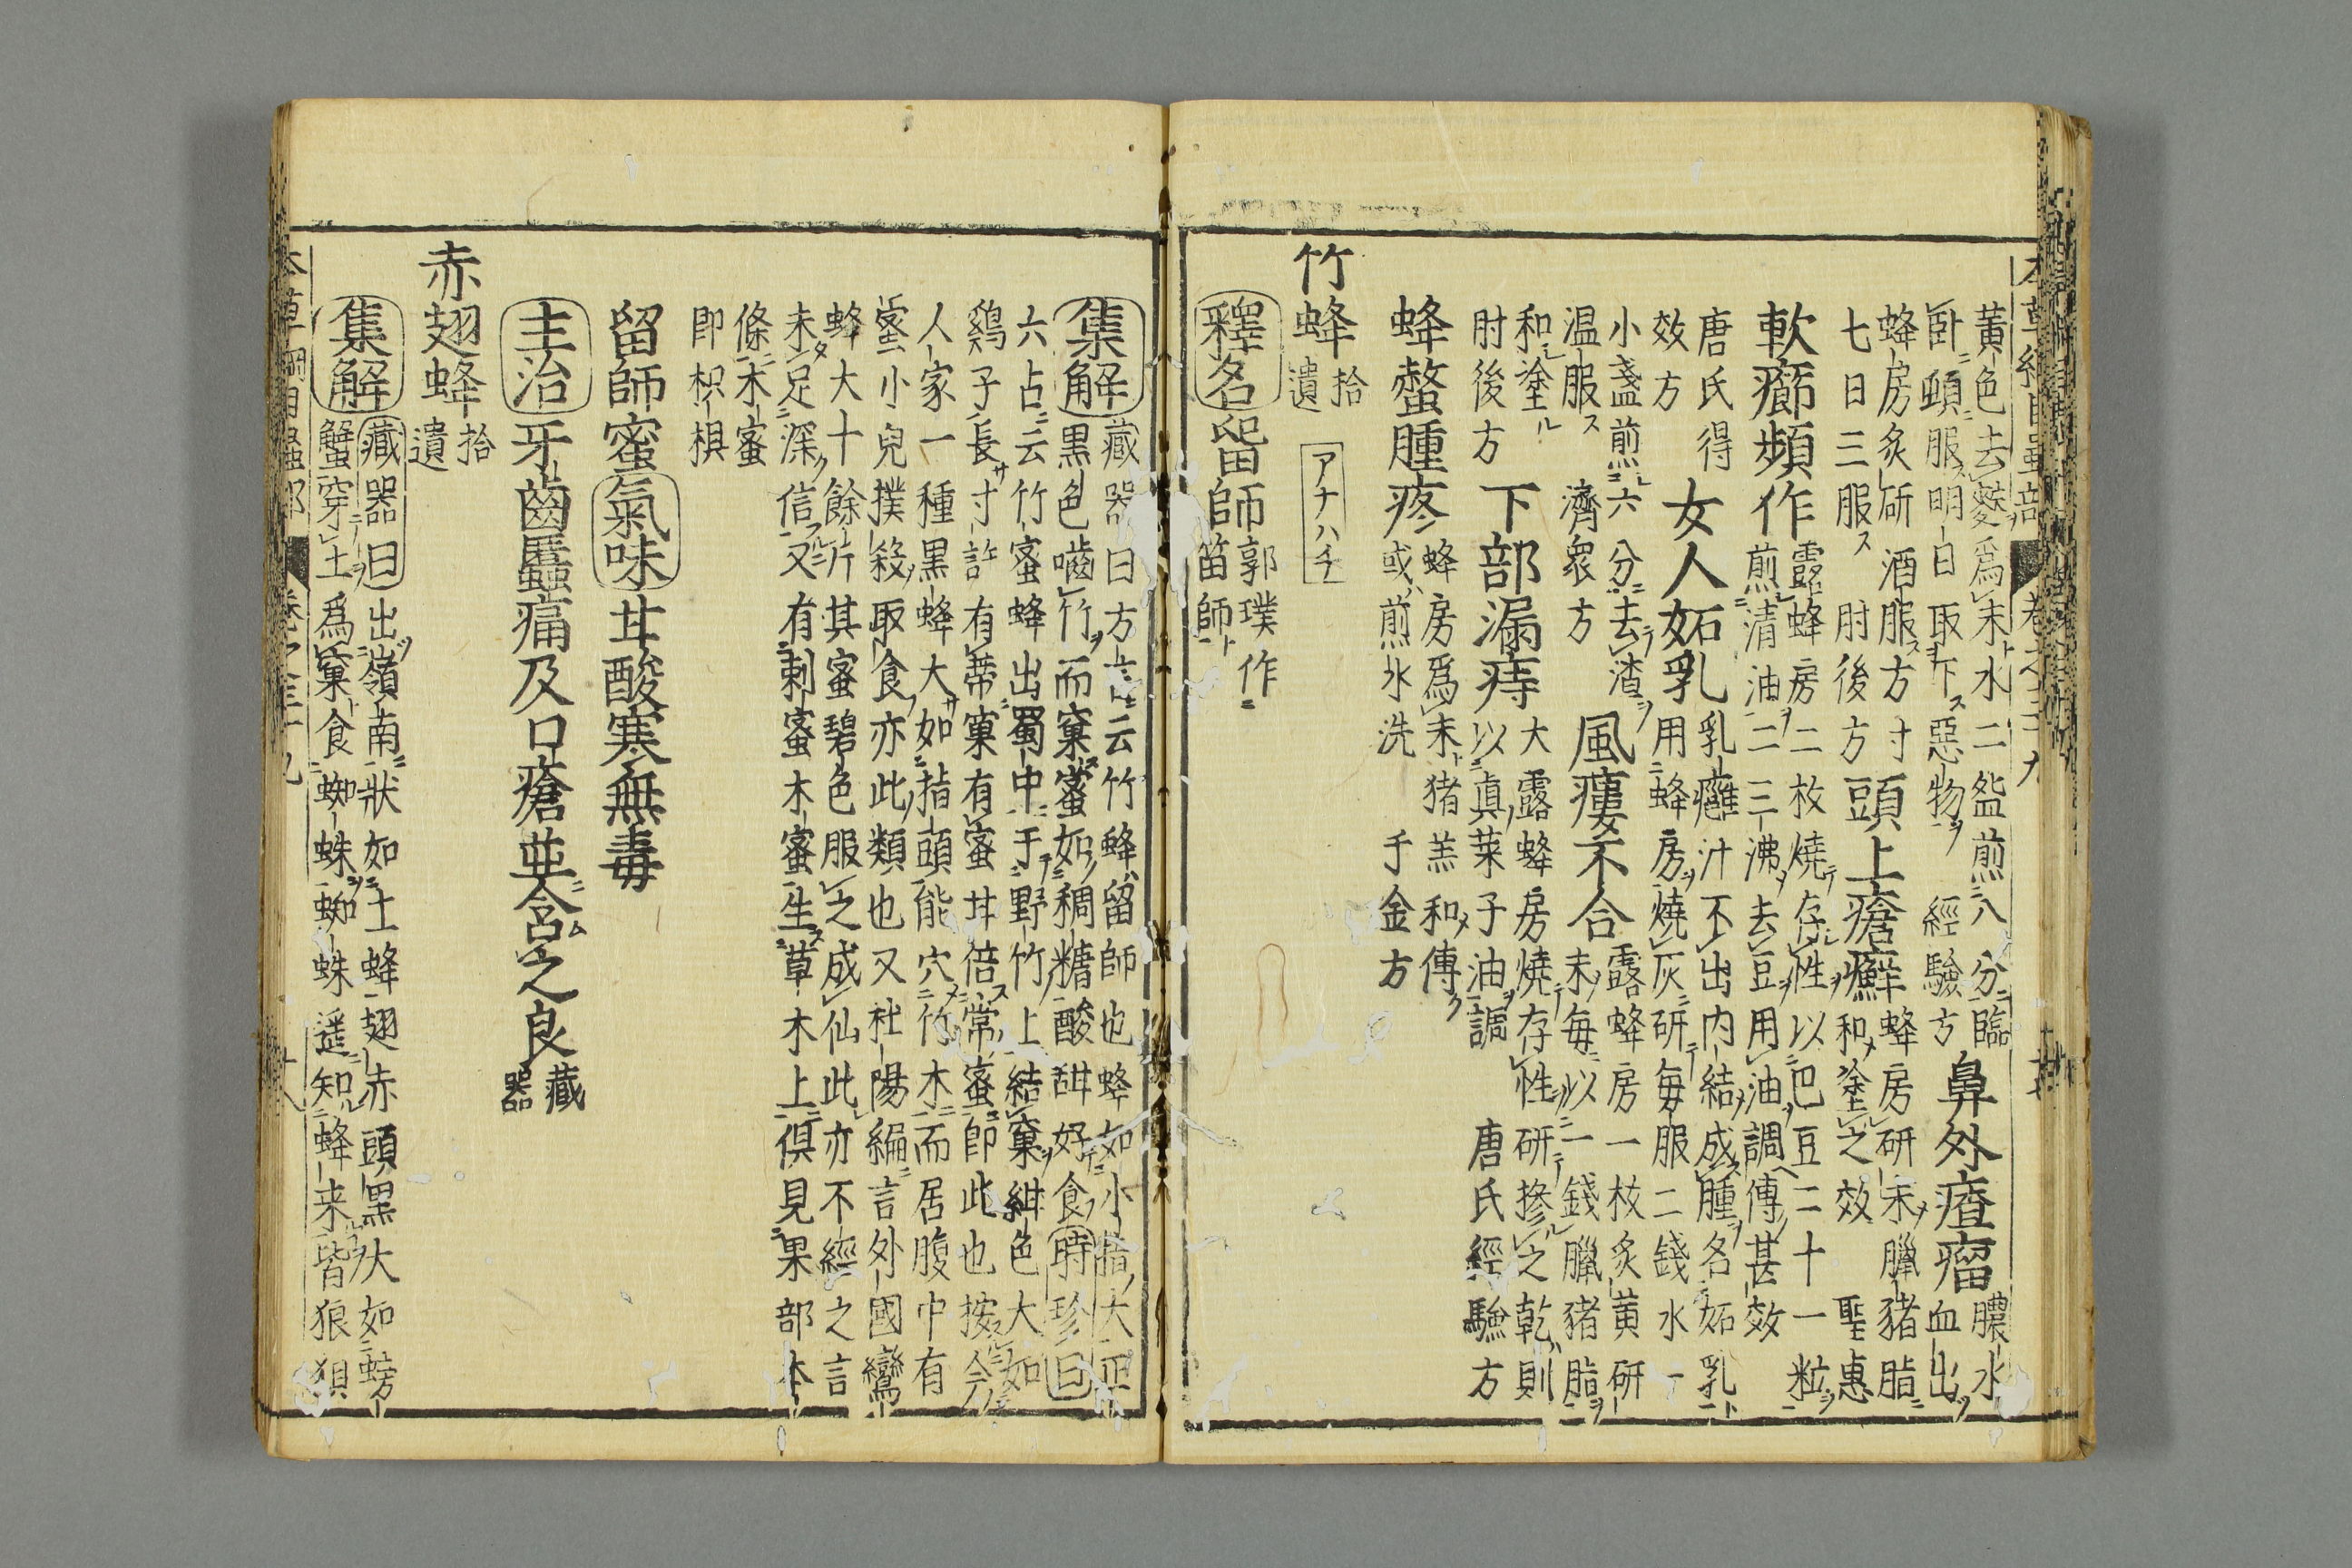 黄色去䕪爲末水二盌煎八分臨
臥頓服明日取下惡物 經驗方
鼻外瘡瘤
膿水
血出
蜂房炙研酒服方寸
七日三服 肘後方
頭上瘡癬
蜂房研末臘猪脂
和塗之效 聖惠
軟癤頻作
露蜂房二枚燒存性以巴豆二十一粒
煎清油二三沸去豆用油調傅甚效
唐氏得
效方
女人妬乳
乳癰汁不出内結成腫名妬乳
用蜂房燒灰研每服二錢水一
小盞煎六分去渣
温服 濟衆方
風瘻不合
露蜂房一枚炙黄研
末每以一錢臘猪脂
和塗
肘後方
下部漏痔
大露蜂房燒存性研摻之乾則
以真菜子油調 唐氏經驗方
蜂螫腫疼
蜂房爲末猪羔和傅
或煎水洗 千金方
竹蜂
拾
遺
アナハチ
釋名留師
郭璞作
笛師
集解
藏器曰方言云竹蜂留師也蜂如小指大正
黒色嚙竹而窠蜜如稠糖酸甜好食時珍曰
六占云竹蜜蜂出蜀中于野竹上結窠紺色大如
鷄子長寸許有蒂窠有蜜甘倍常蜜即此也按今
人家一種黒蜂大如指頭能穴竹木而居腹中有
蜜小兒撲殺取食亦此類也又杜陽編言外國鸞
蜂大十餘斤其蜜碧色服之成仙此亦不經之言
未足深信又有刺蜜木蜜生草木上俱見果部本
條木蜜
即枳椇
留師蜜氣味甘酸寒無毒
主治牙齒䘌痛及口瘡並含之良
藏
器
赤翅蜂
拾
遺
集解
藏器曰出嶺南狀如土蜂翅赤頭黒大如螃
蟹穿土爲窠食蜘蛛蜘蛛遥知蜂来皆狼狽